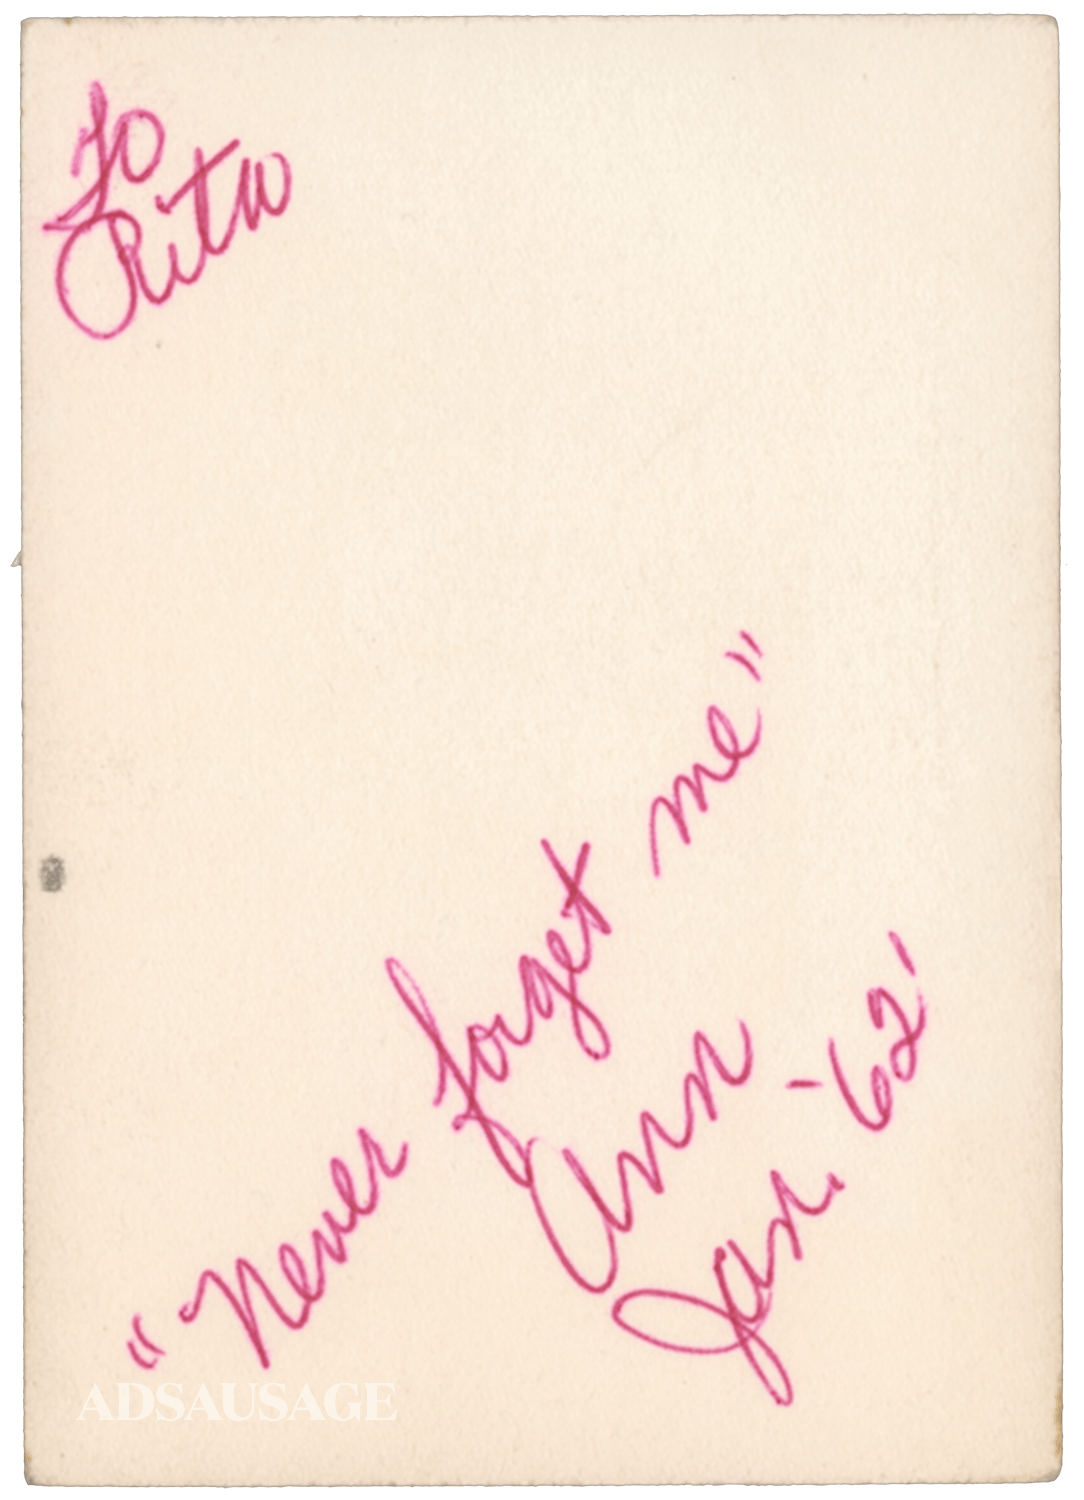 To
Rita
"Never forget me"
Ann
Jan. - '62'
ADSAUSAGE